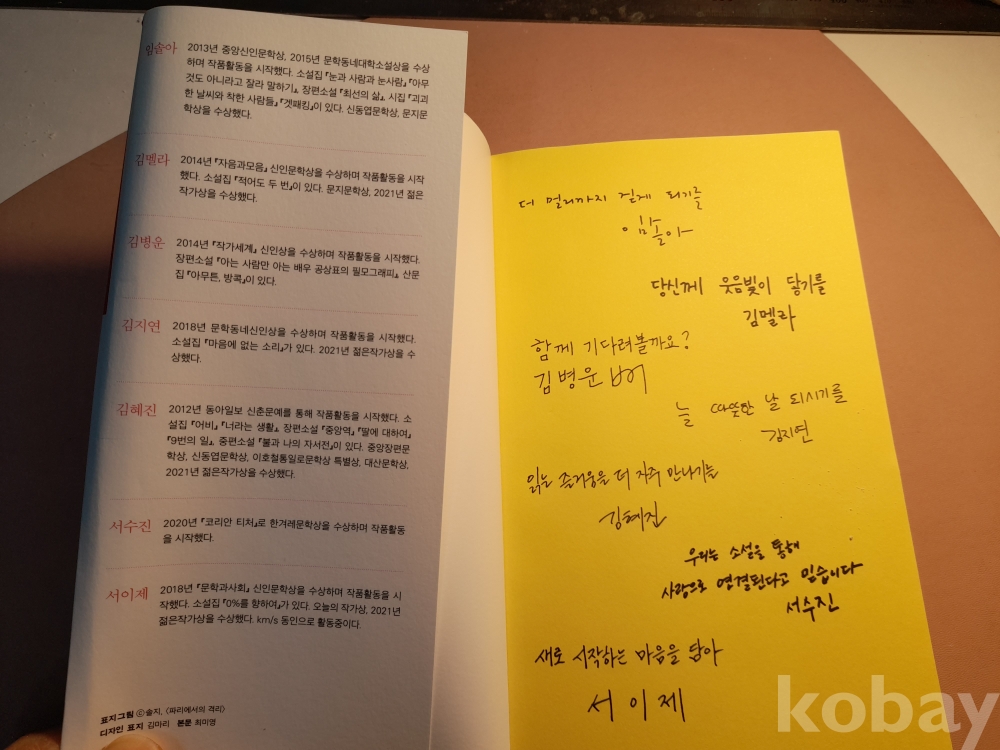 임솔아
2013년 중앙신인문학상, 2015년 문학동네대학소설상을 수상
하며 작품활동을 시작했다. 소설집 『눈과 사람과 눈사람』 『아무
것도 아니라고 잘라 말하기』, 장편소설 『최선의 삶』, 시집 『괴괴
한 날씨와 착한 사람들』 『겟패킹』이 있다. 신동엽문학상, 문지문
학상을 수상했다.
김멜라
2014년 『자음과모음』 신인문학상을 수상하며 작품활동을 시작
했다. 소설집 『적어도 두 번』이 있다. 문지문학상, 2021년 젊은
작가상을 수상했다.
김병운
2014년 『작가세계』 신인상을 수상하며 작품활동을 시작했다.
장편소설 『아는 사람만 아는 배우 공상표의 필모그래피』, 산문
집 『아무튼, 방콕』이 있다.
김지연
2018년 문학동네신인상을 수상하며 작품활동을 시작했다.
소설집 『마음에 없는 소리』가 있다. 2021년 젊은작가상을 수
상했다.
김혜진
2012년 동아일보 신춘문예를 통해 작품활동을 시작했다. 소
설집 『어비』 『너라는 생활』, 장편소설 『중앙역』 『딸에 대하여』
『9번의 일』, 중편소설 『불과 나의 자서전』이 있다. 중앙장편문
학상, 신동엽문학상, 이호철통일로문학상 특별상, 대산문학상,
2021년 젊은작가상을 수상했다.
서수진
2020년 『코리안 티처』로 한겨레문학상을 수상하며 작품활동
을 시작했다.
서이제
2018년 『문학과사회』 신인문학상을 수상하며 작품활동을 시
작했다. 소설집 『0%를 향하여』가 있다. 오늘의 작가상, 2021년
젊은작가상을 수상했다. km/s 동인으로 활동중이다.
표지그림 ⓒ솔지, 〈파리에서의 격리〉
디자인 표지 김마리 본문 최미영
더 멀리까지 길게 되기를
임솔아
당신께 웃음빛이 닿기를
김멜라
함께 기다려볼까요?
김병운
늘 따뜻한 날 되시기를
김지연
읽는 즐거움을 더 자주 만나기를
김혜진
우리는 소설을 통해
사랑으로 연결된다고 믿습니다
서수진
새로 시작하는 마음을 담아
서이제
kobay